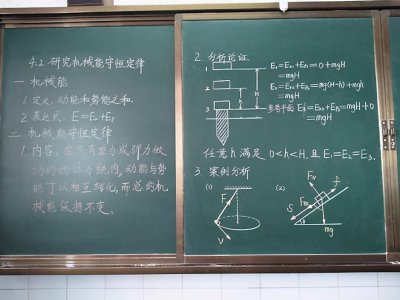 4.2 研究机械能守恒定律
一 机械能
定义：动能和势能之和.
2 表达式：E=Eₖ+Eₚ
二 机械能守恒定律
1. 内容：在只有重力或弹力做
功的物体系统内，动能与势
能可以相互转化，而总的机
械能保持不变。
2 分析论证
1
2
3
h
H
E₁=Eₖ₁+Eₚ₁=0+mgH
=mgH
E₂=Eₖ₂+Eₚ₂=mg(H-h)+mgh
=mgH
参考平面 E₃=Eₖ₃+Eₚ₃=mgH+0
=mgH
任意 h 满足 0<h<H, 且 E₁=E₂=E₃.
3. 案例分析
(1)
(2)
F
v
Fɴ
f
s
mg